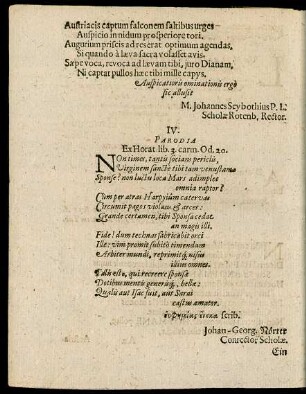 Austriacis captum falconem saltibus urges
Auspicio in nidum prosperiore tori.
Augurium priscis ad res erat optimum agendas,
Si quando à læva sacra volasset avis.
Sæpe voca, revoca ad lævam tibi, juro Dianam,
Ni captat pullos hæc tibi mille capys,
Auspicatioris ominationis ergo
sic allusit
M. Johannes Seybothius P. L.
Scholæ Rotenb. Rector.
IV.
PARODIA
Ex Horat. lib. 3. carm. Od. 20.
NOn timer, tantis socians periclis,
Virginem sanctè tibi tam venustam
Sponse? non luctu loca Mars adimplet
omnia raptor?
Cum per atras Harpyium catervas
Circumit pagos violans & arces:
Grande certamen, tibi Sponsa cedat
an magis illi.
Fide! dum technas fabricabit orci
Ille: vim promit subitò timendum
Arbiter mundi, reprimitq; nisus
illius omnes.
Talis esto, qui recreere sponsæ
Dotibus mentis generisq; bellæ:
Qualis aut Isac fuit, aut Saræ
castus amator.
scrib.
Johan-Georg. Nörter
Conrector Scholæ.
Ein